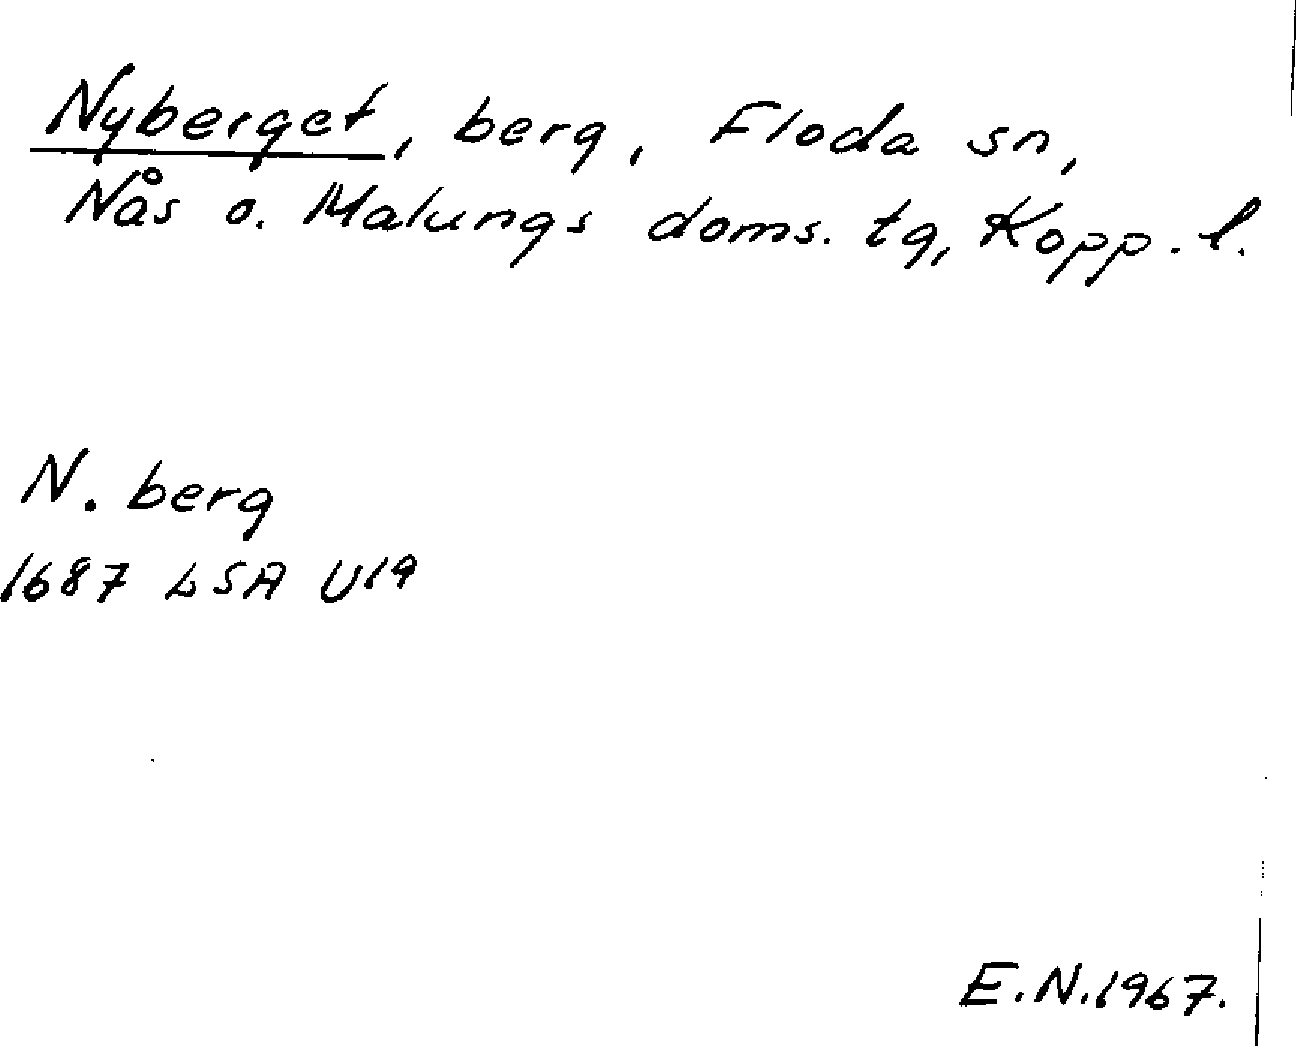 Nyberget, berg, Floda sn,
Nås o. Malungs doms. tg, Kopp. l.
N. berg
1687 LSA U19
E.N.1967.